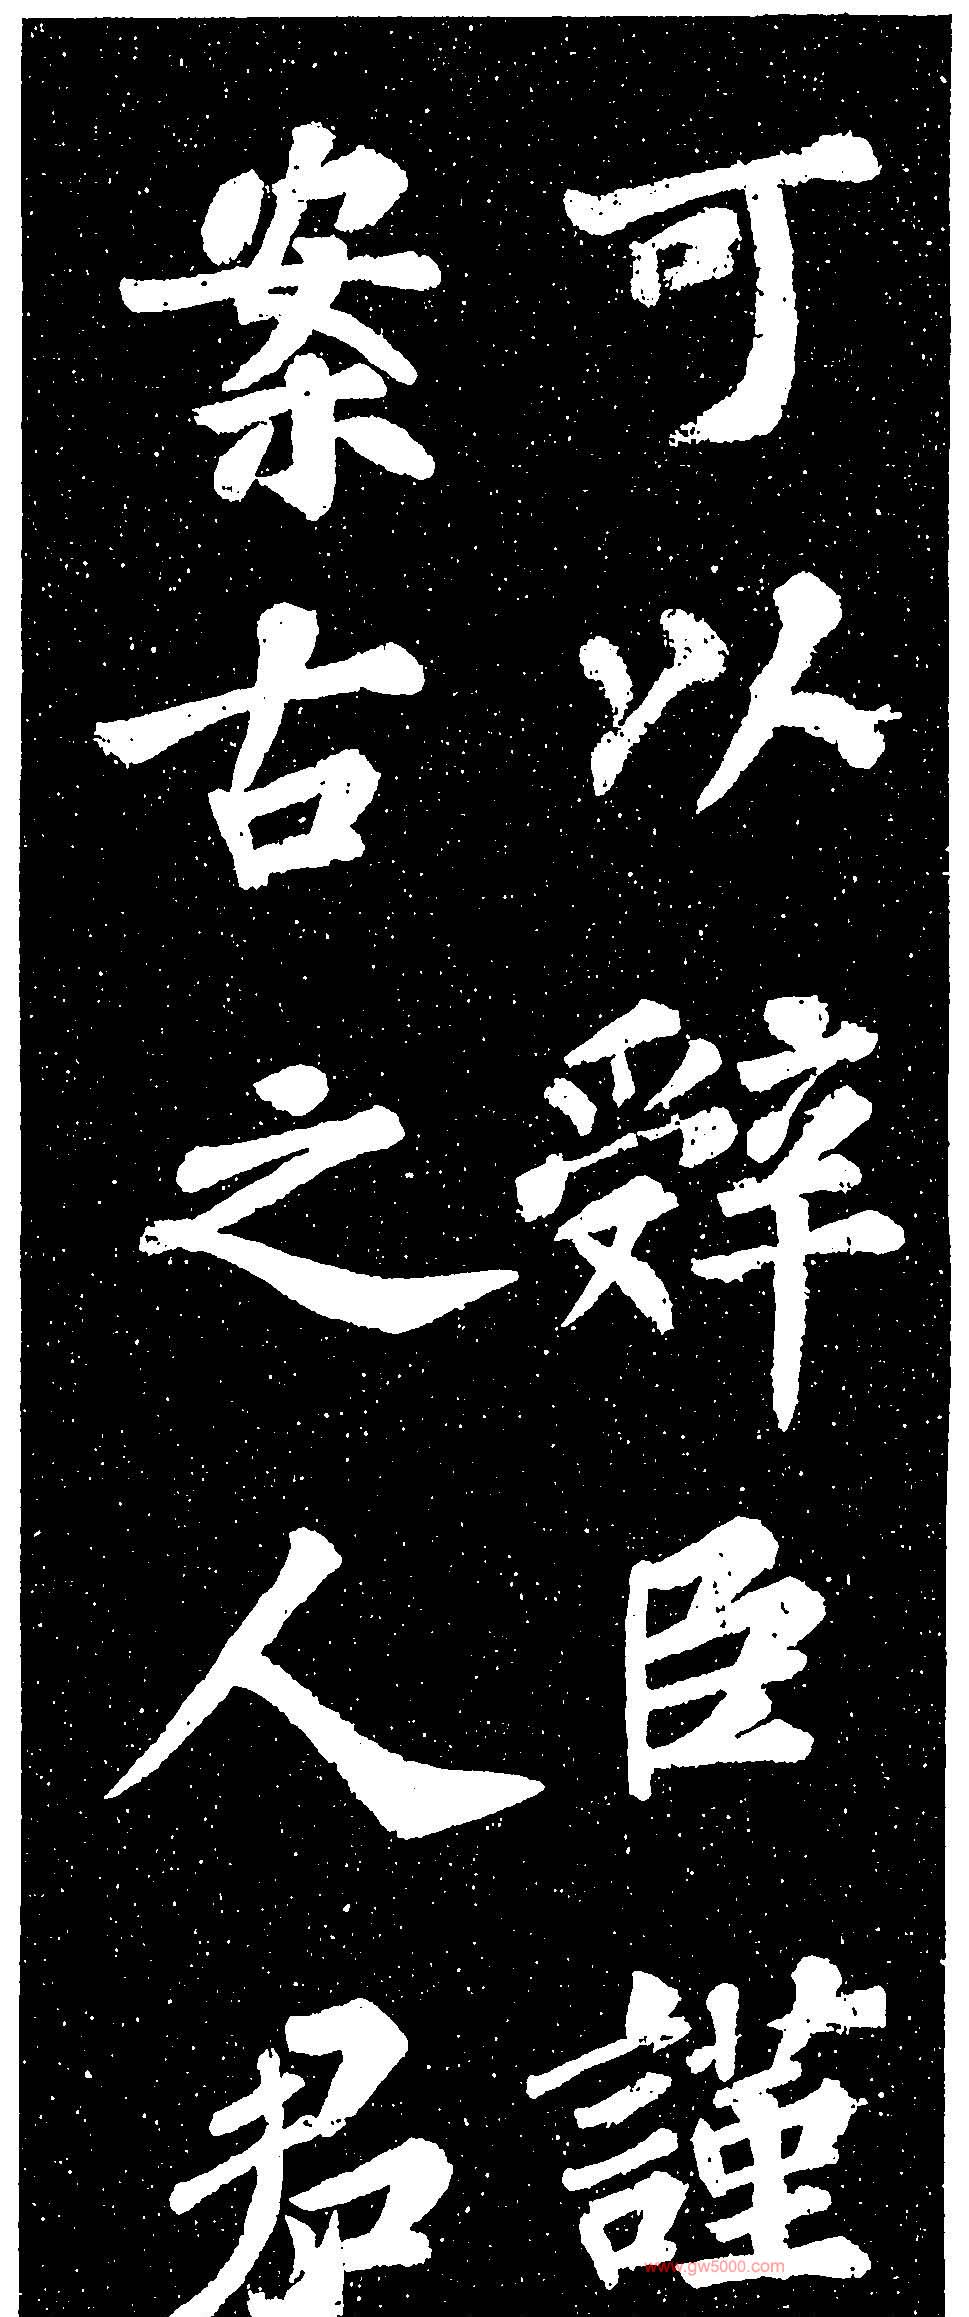 可以辤臣謹
案古之人君
www.gw5000.com